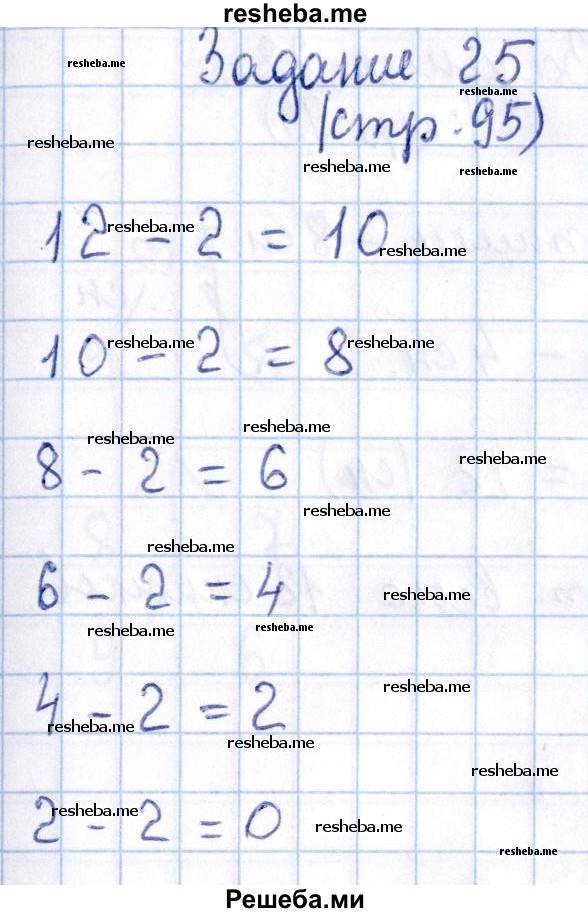 resheba.me
Задание 25
resheba.me
resheba.me
(стр. 95)
resheba.me
resheba.me
resheba.me
12 - 2 = 10
resheba.me
resheba.me
10 - 2 = 8
resheba.me
resheba.me
resheba.me
resheba.me
resheba.me
8 - 2 = 6
resheba.me
resheba.me
6 - 2 = 4
resheba.me
resheba.me
resheba.me
resheba.me
4 - 2 = 2
resheba.me
resheba.me
resheba.me
2 - 2 = 0
resheba.me
resheba.me
resheba.me
Решеба.ми